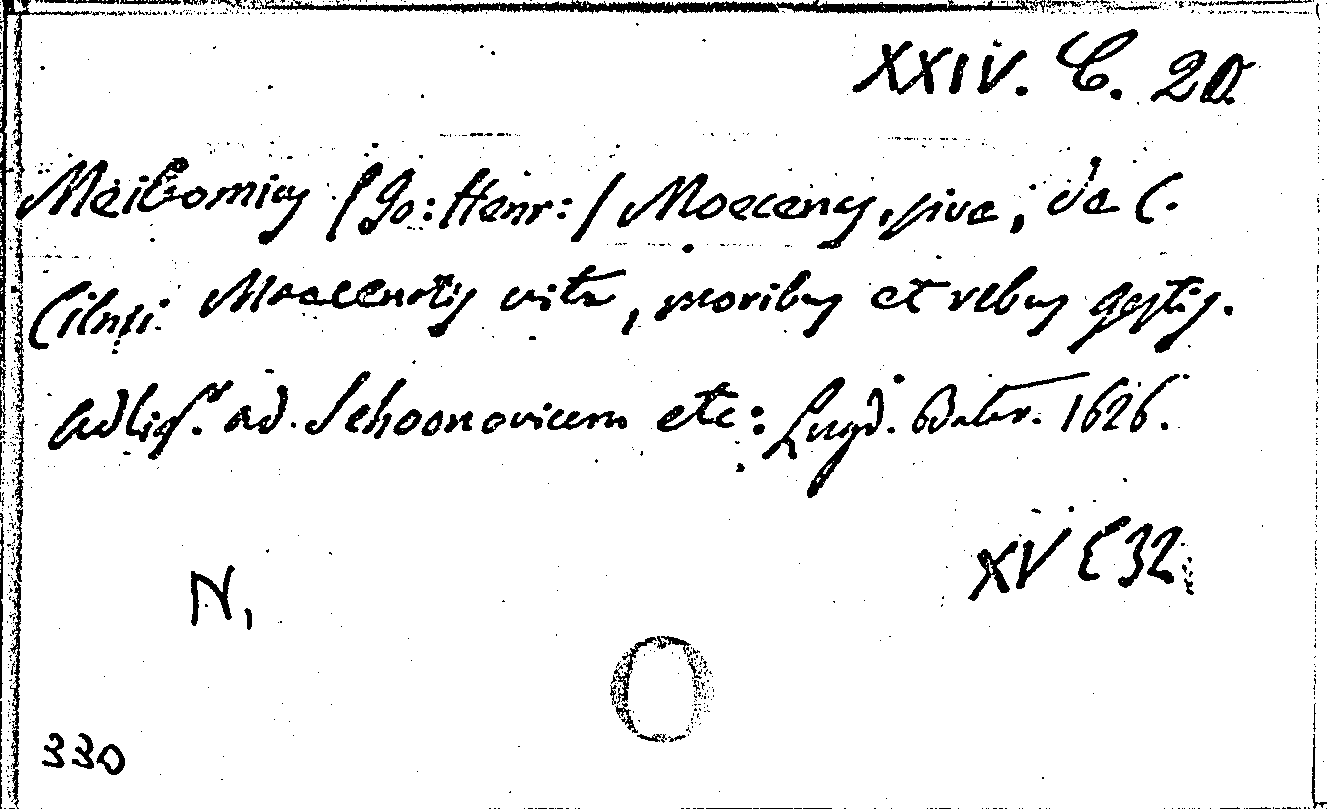 XXIV. C. 20.
Meibomius /Jo: Henr:/ Moecenas, sive, de C.
Cilnii Maecenatis vita, moribus et rebus gestis.
Adlig. ad. Schoonovium etc: Lugd. Batav. 1626.
XV E 32
N.
330